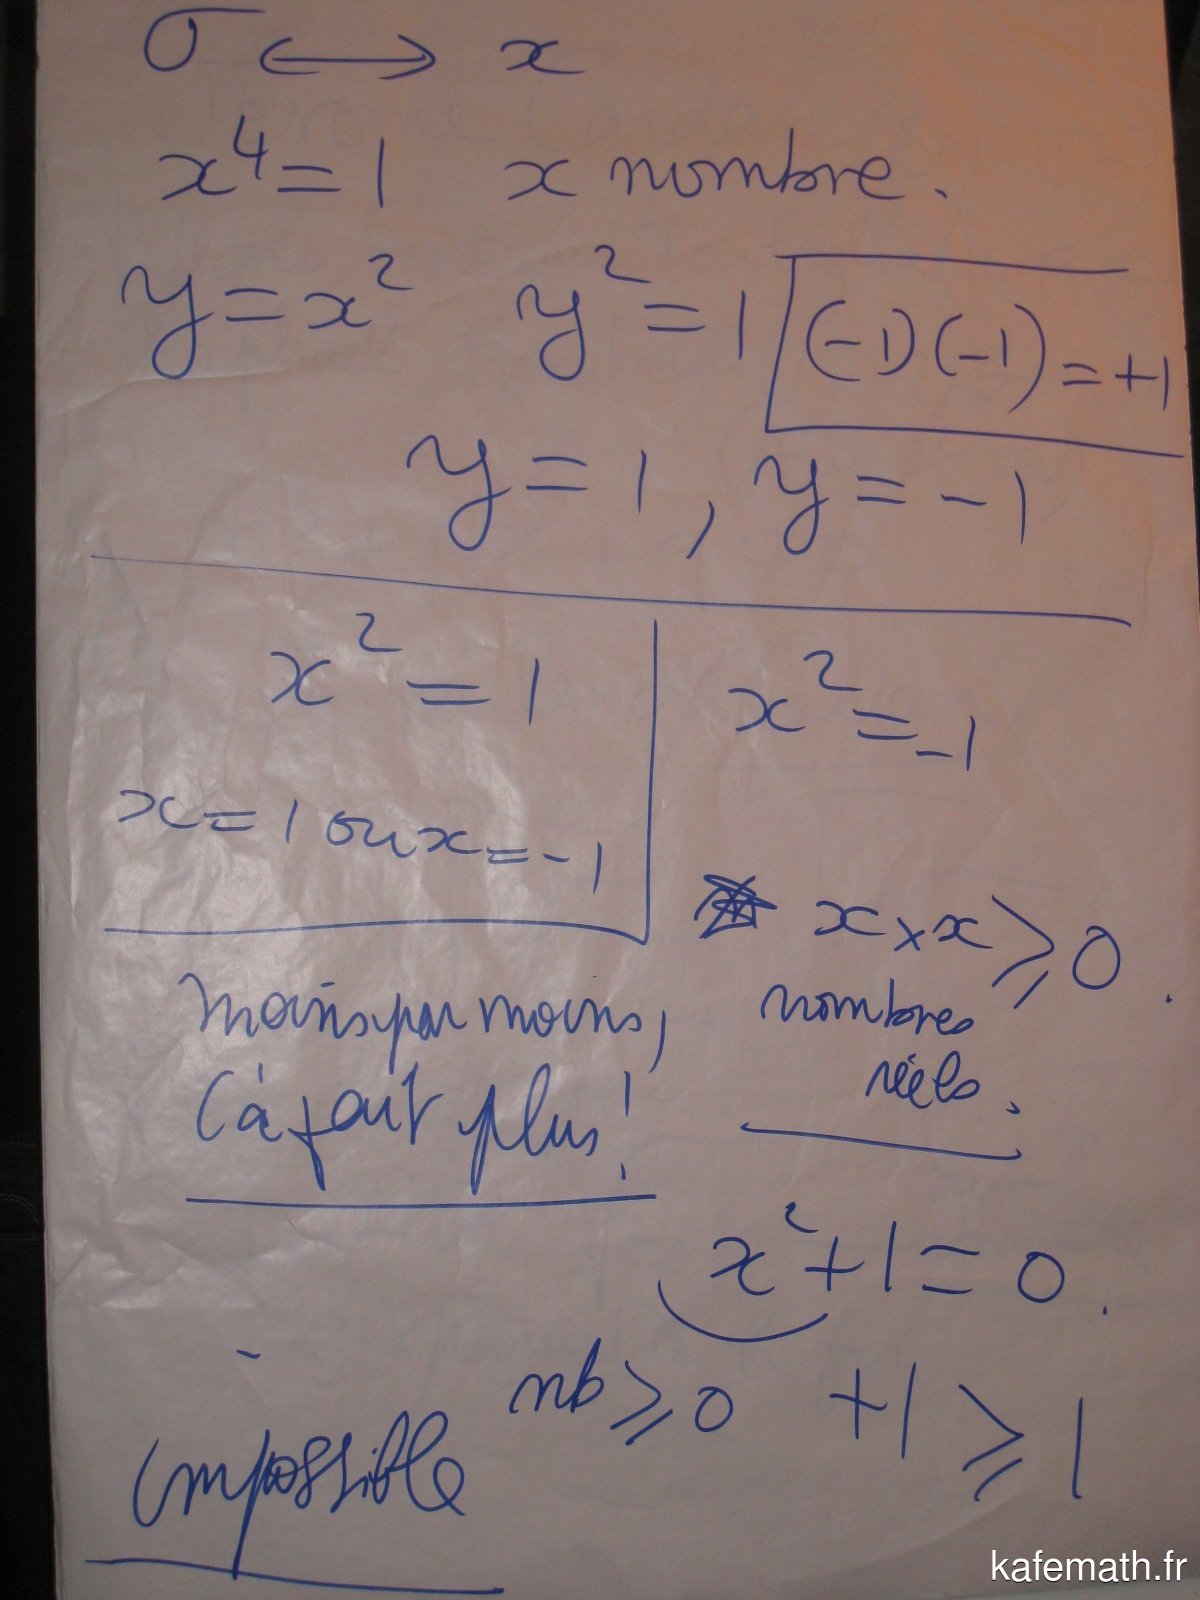 σ ⟷ x
x⁴ = 1 x nombre.
y = x² y² = 1 (-1)(-1) = +1
y = 1, y = -1
x² = 1
x = 1 ou x = -1
x² = -1
x × x ≥ 0.
nombres
réels.
Moins par moins,
çà fait plus!
x² + 1 = 0.
nb ≥ 0 +1 ≥ 1
impossible
kafemath.fr